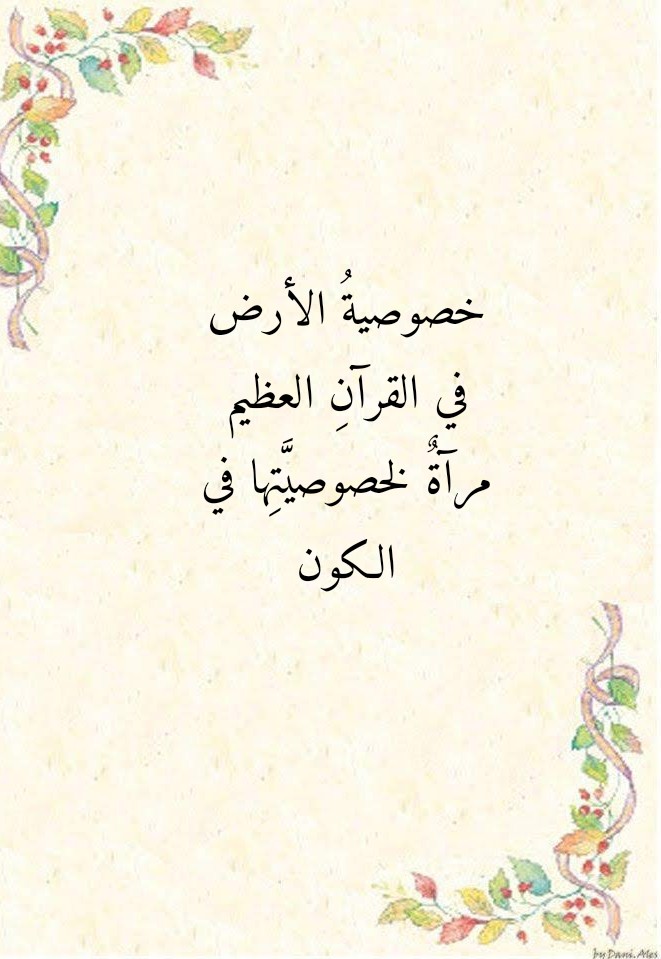 خصوصيةُ الأرض
في القرآنِ العظيم
مرآةٌ لخصوصيَّتِها في
الكون
by Dani. Ales